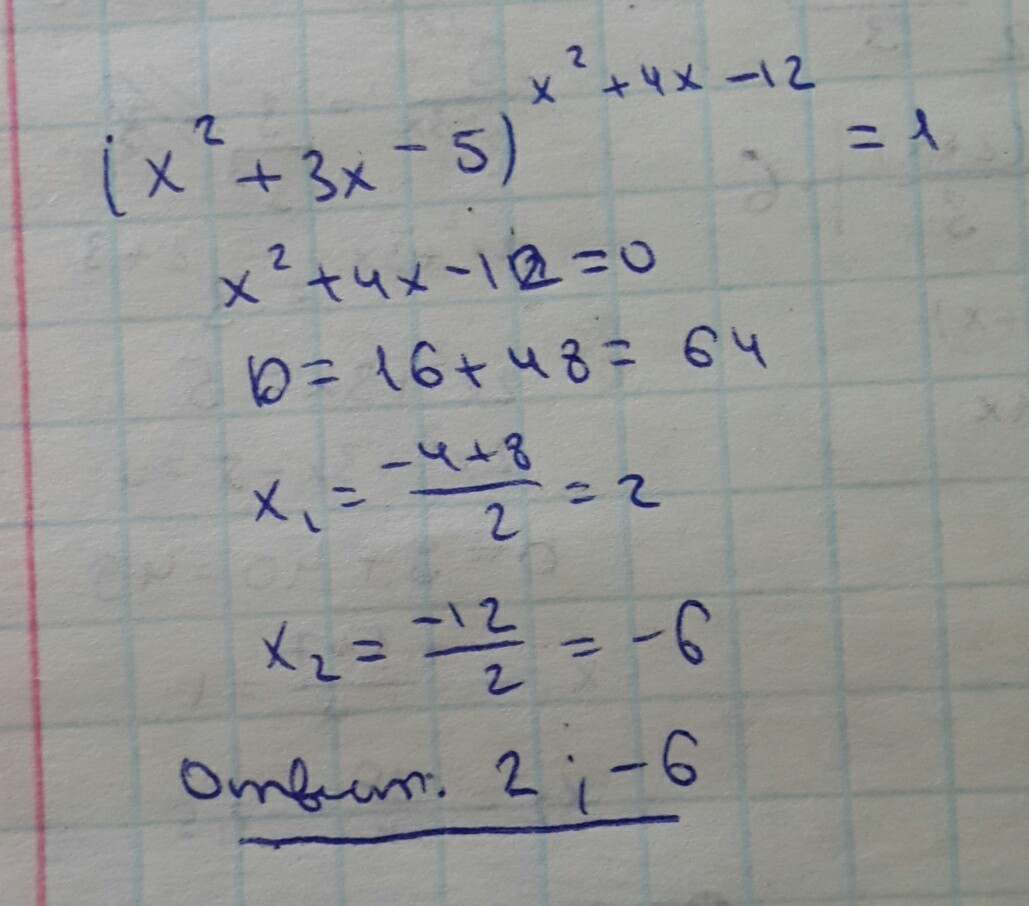 (x² + 3x - 5)^(x² + 4x - 12) = 1
x² + 4x - 12 = 0
D = 16 + 48 = 64
x₁ = (-4+8)/2 = 2
x₂ = -12/2 = -6
Ответ: 2 ; -6